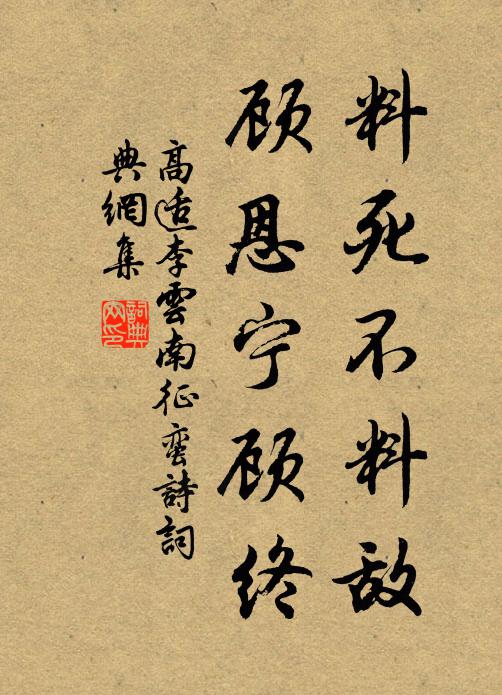 料死不料敌
顾恩宁顾终
高适李雲南征蛮詩詞
典網集
詞典网印